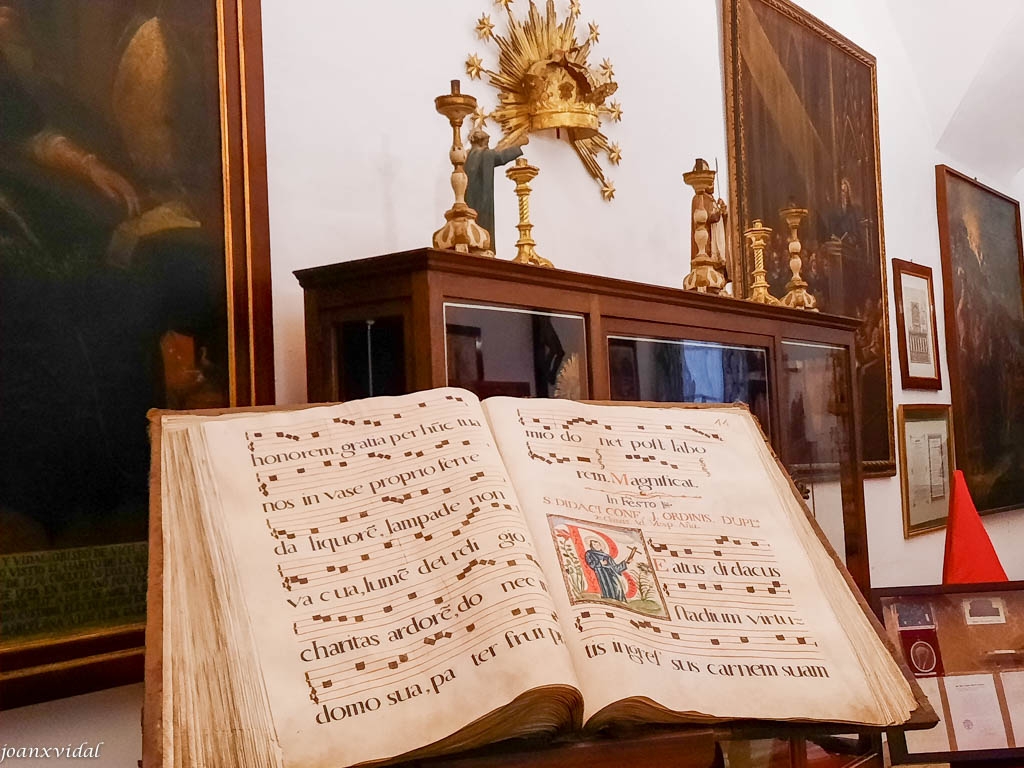 honorem, gratia per hũc tua
nos in vase proprio ferre
da liquorẽ, lampade non
va cua, lumẽ det reli gio,
charitas ardorẽ, do nec
domo sua, pa ter frui
mio do net post labo
rem. Magnificat.
In Festo
S. DIDACI CONF. I. ORDINIS. DUPL=
B Eatus didacus
stadium virtu=
tis ingres sus carnem suam
joanxvidal